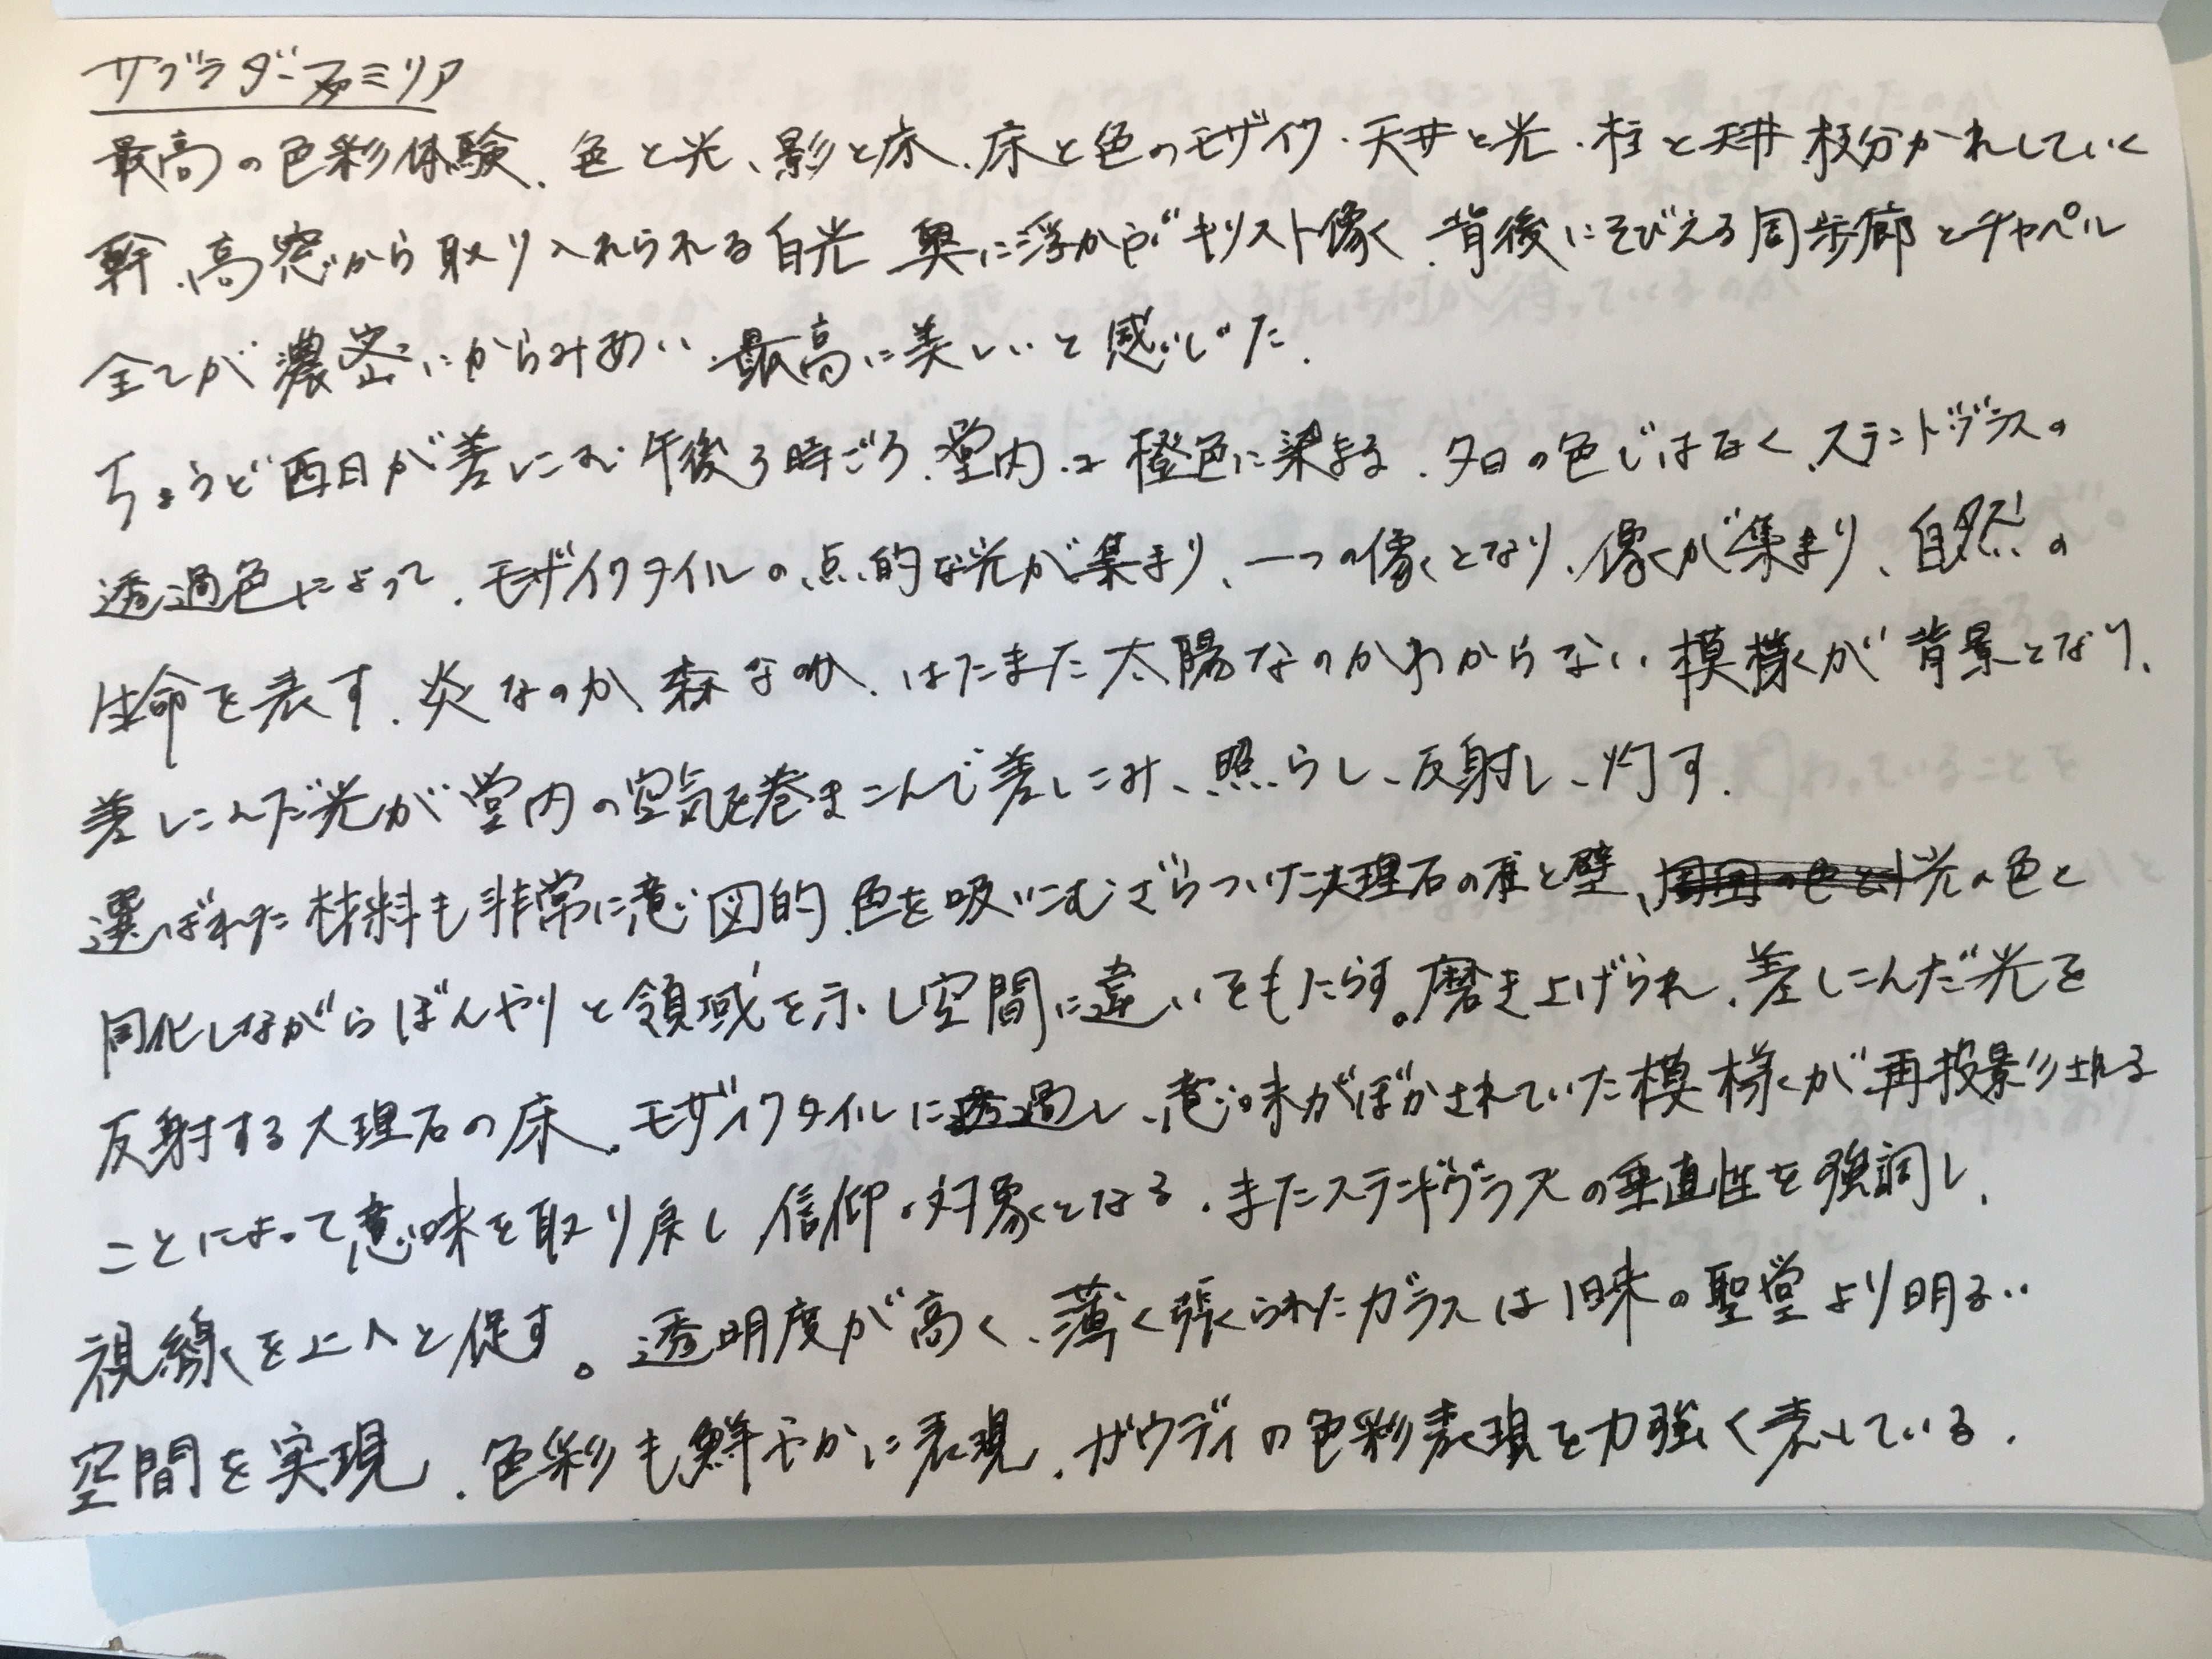 サグラダーファミリア
最高の色彩体験、色と光、影と床、床と色のモザイク・天井と光・柱と天井、枝分かれしていく
幹、高窓から取り入れられる自光 奥に浮かぶキリスト像、背後にそびえる周歩廊とチャペル
全てが濃密にからみあい、最高に美しいと感じた.
ちょうど西日が差しこむ午後3時ごろ、堂内は橙色に染まる.夕日の色ではなく、ステンドグラスの
透過色によって.モザイクタイルの点的な光が集まり、一つの像となり、像が集まり、自然の
生命を表す.炎なのか、森なのか、はたまた太陽なのかわからない模様が背景となり、
差しこんだ光が堂内の空気を巻きこんで差しこみ、照らし、反射し、灯す.
選ばれた材料も非常に意図的.色を吸いこむざらついた大理石の柱と壁、光の色と
同化しながらぼんやりと領域を示し空間に違いをもたらす。磨き上げられ、差しこんだ光を
反射する大理石の床。モザイクタイルに透過し、意味がぼかされていた模様が再投影される
ことによって意味を取り戻し、信仰の対象となる.またステンドグラスの垂直性を強調し、
視線を上へと促す。透明度が高く、薄く張られたガラスは旧来の聖堂より明るい
空間を実現.色彩も鮮やかに表現.ガウディの色彩表現を力強く表している.